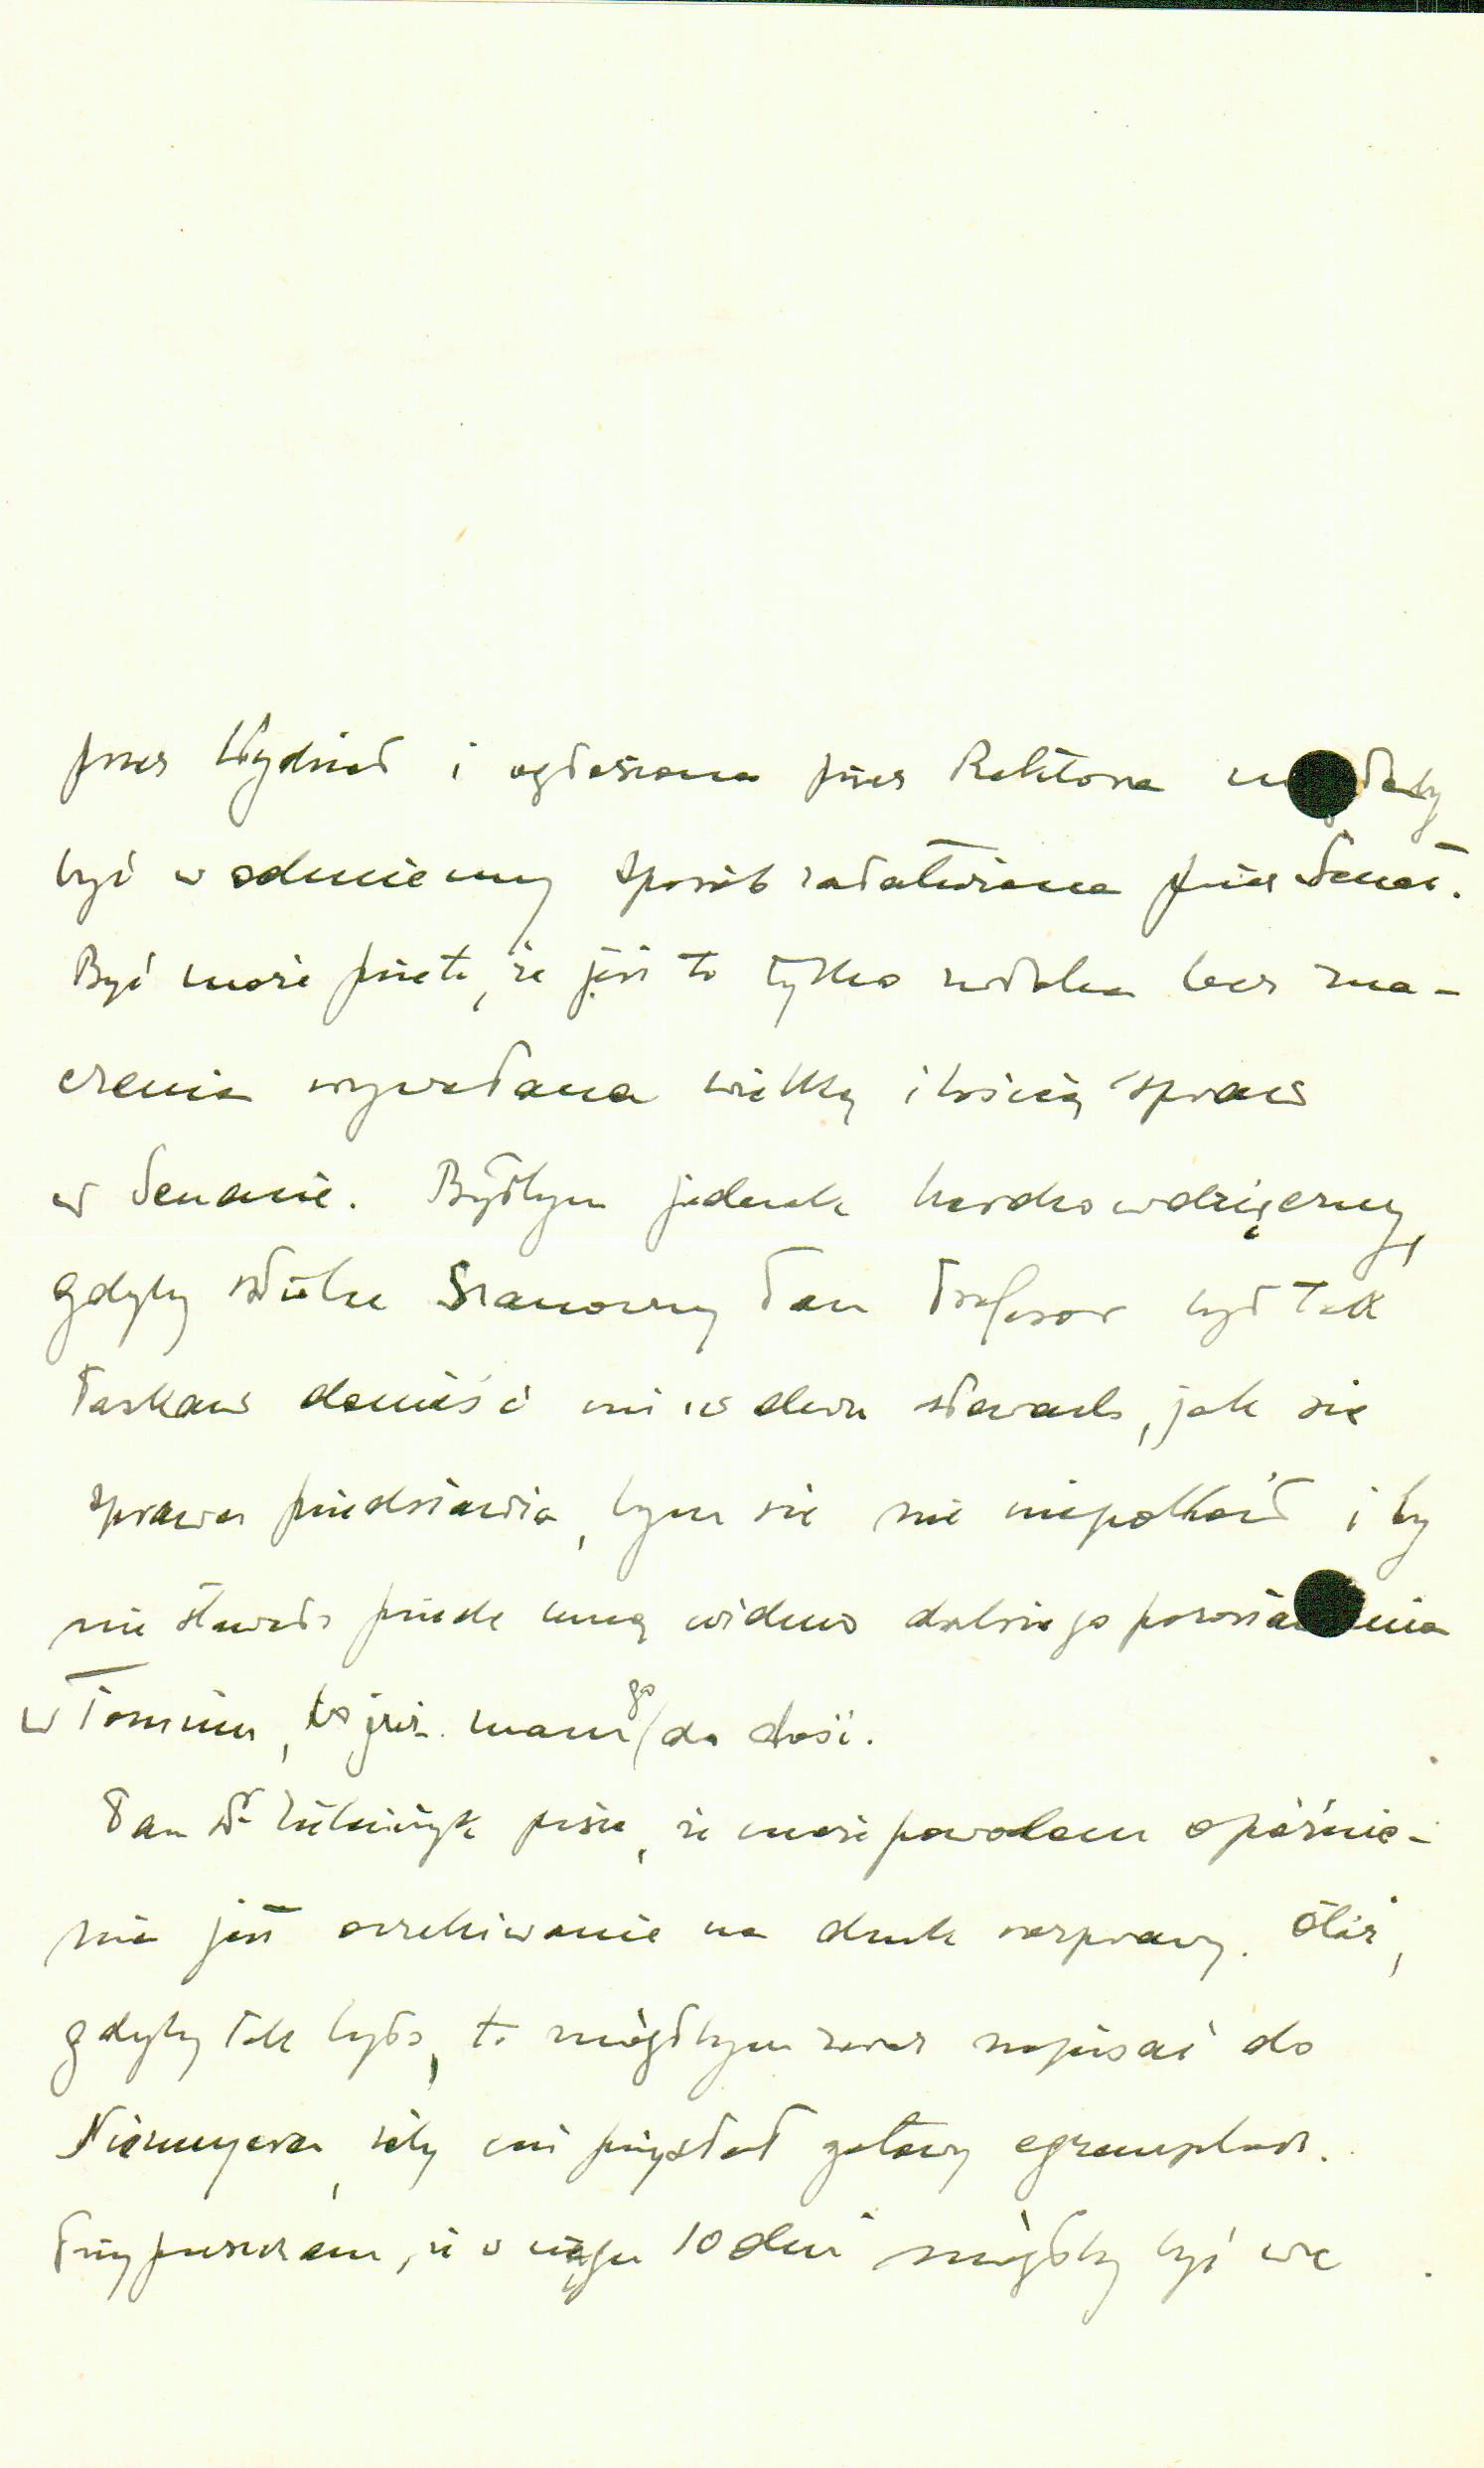 przez Wydział i ogłoszona przez Rektora miałaby
być w odmienny sposób załatwiona przez Senat.
Być może przeto, że jest to tylko zwłoka bez zna-
czenia wywołana wielką ilością spraw
w Senacie. Byłbym jednak bardzo wdzięczny,
gdyby Szanowny Pan Profesor był tak
łaskaw donieść mi w dwu słowach, jak się
sprawa przedstawia, bym się nie niepokoił i by
nie stawało przede mną widmo dalszego pozostawania
w Toruniu, bo już mam go do dość.
Pan Dr pisze, że może powodem opóźnie-
nia jest oczekiwanie na druk rozprawy. Otóż,
gdyby tak było, to mógłbym zaraz napisać do
Niemeyera, żeby mi przysłał gotowy egzemplarz.
Przypuszczam, że w ciągu 10 dni mógłby być we